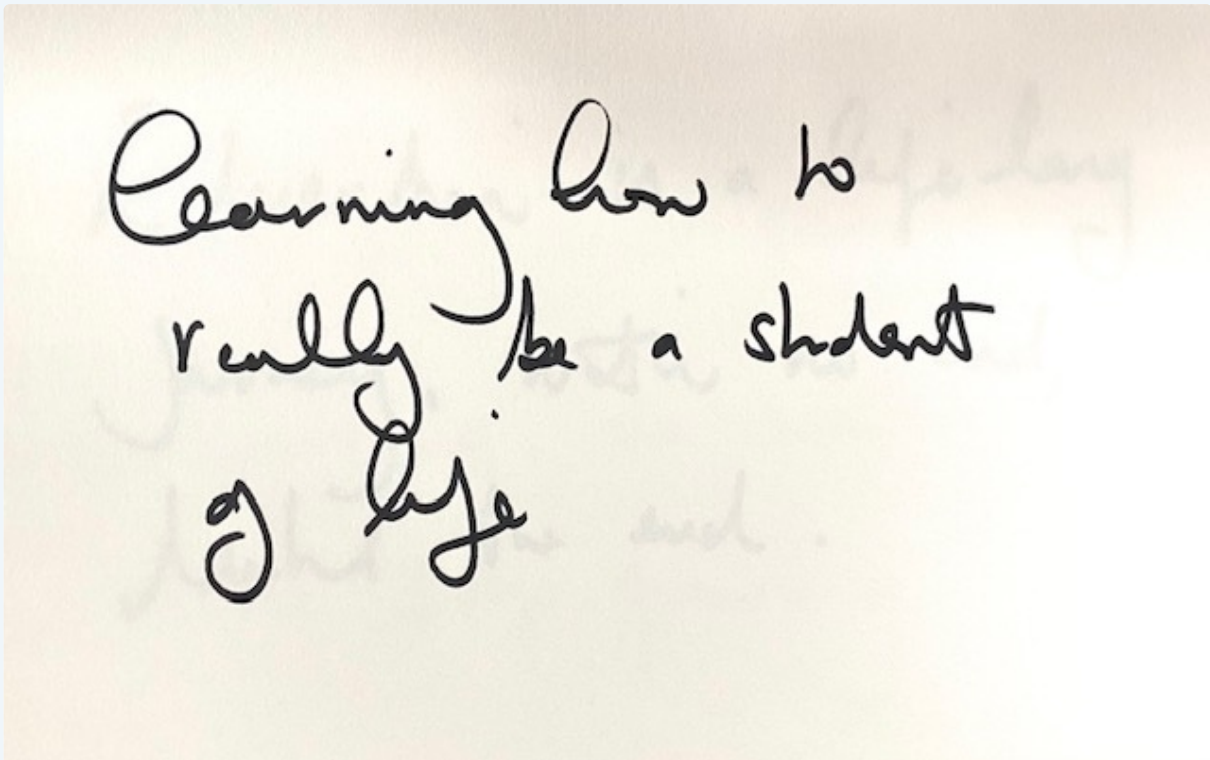 learning how to
really be a student
of life